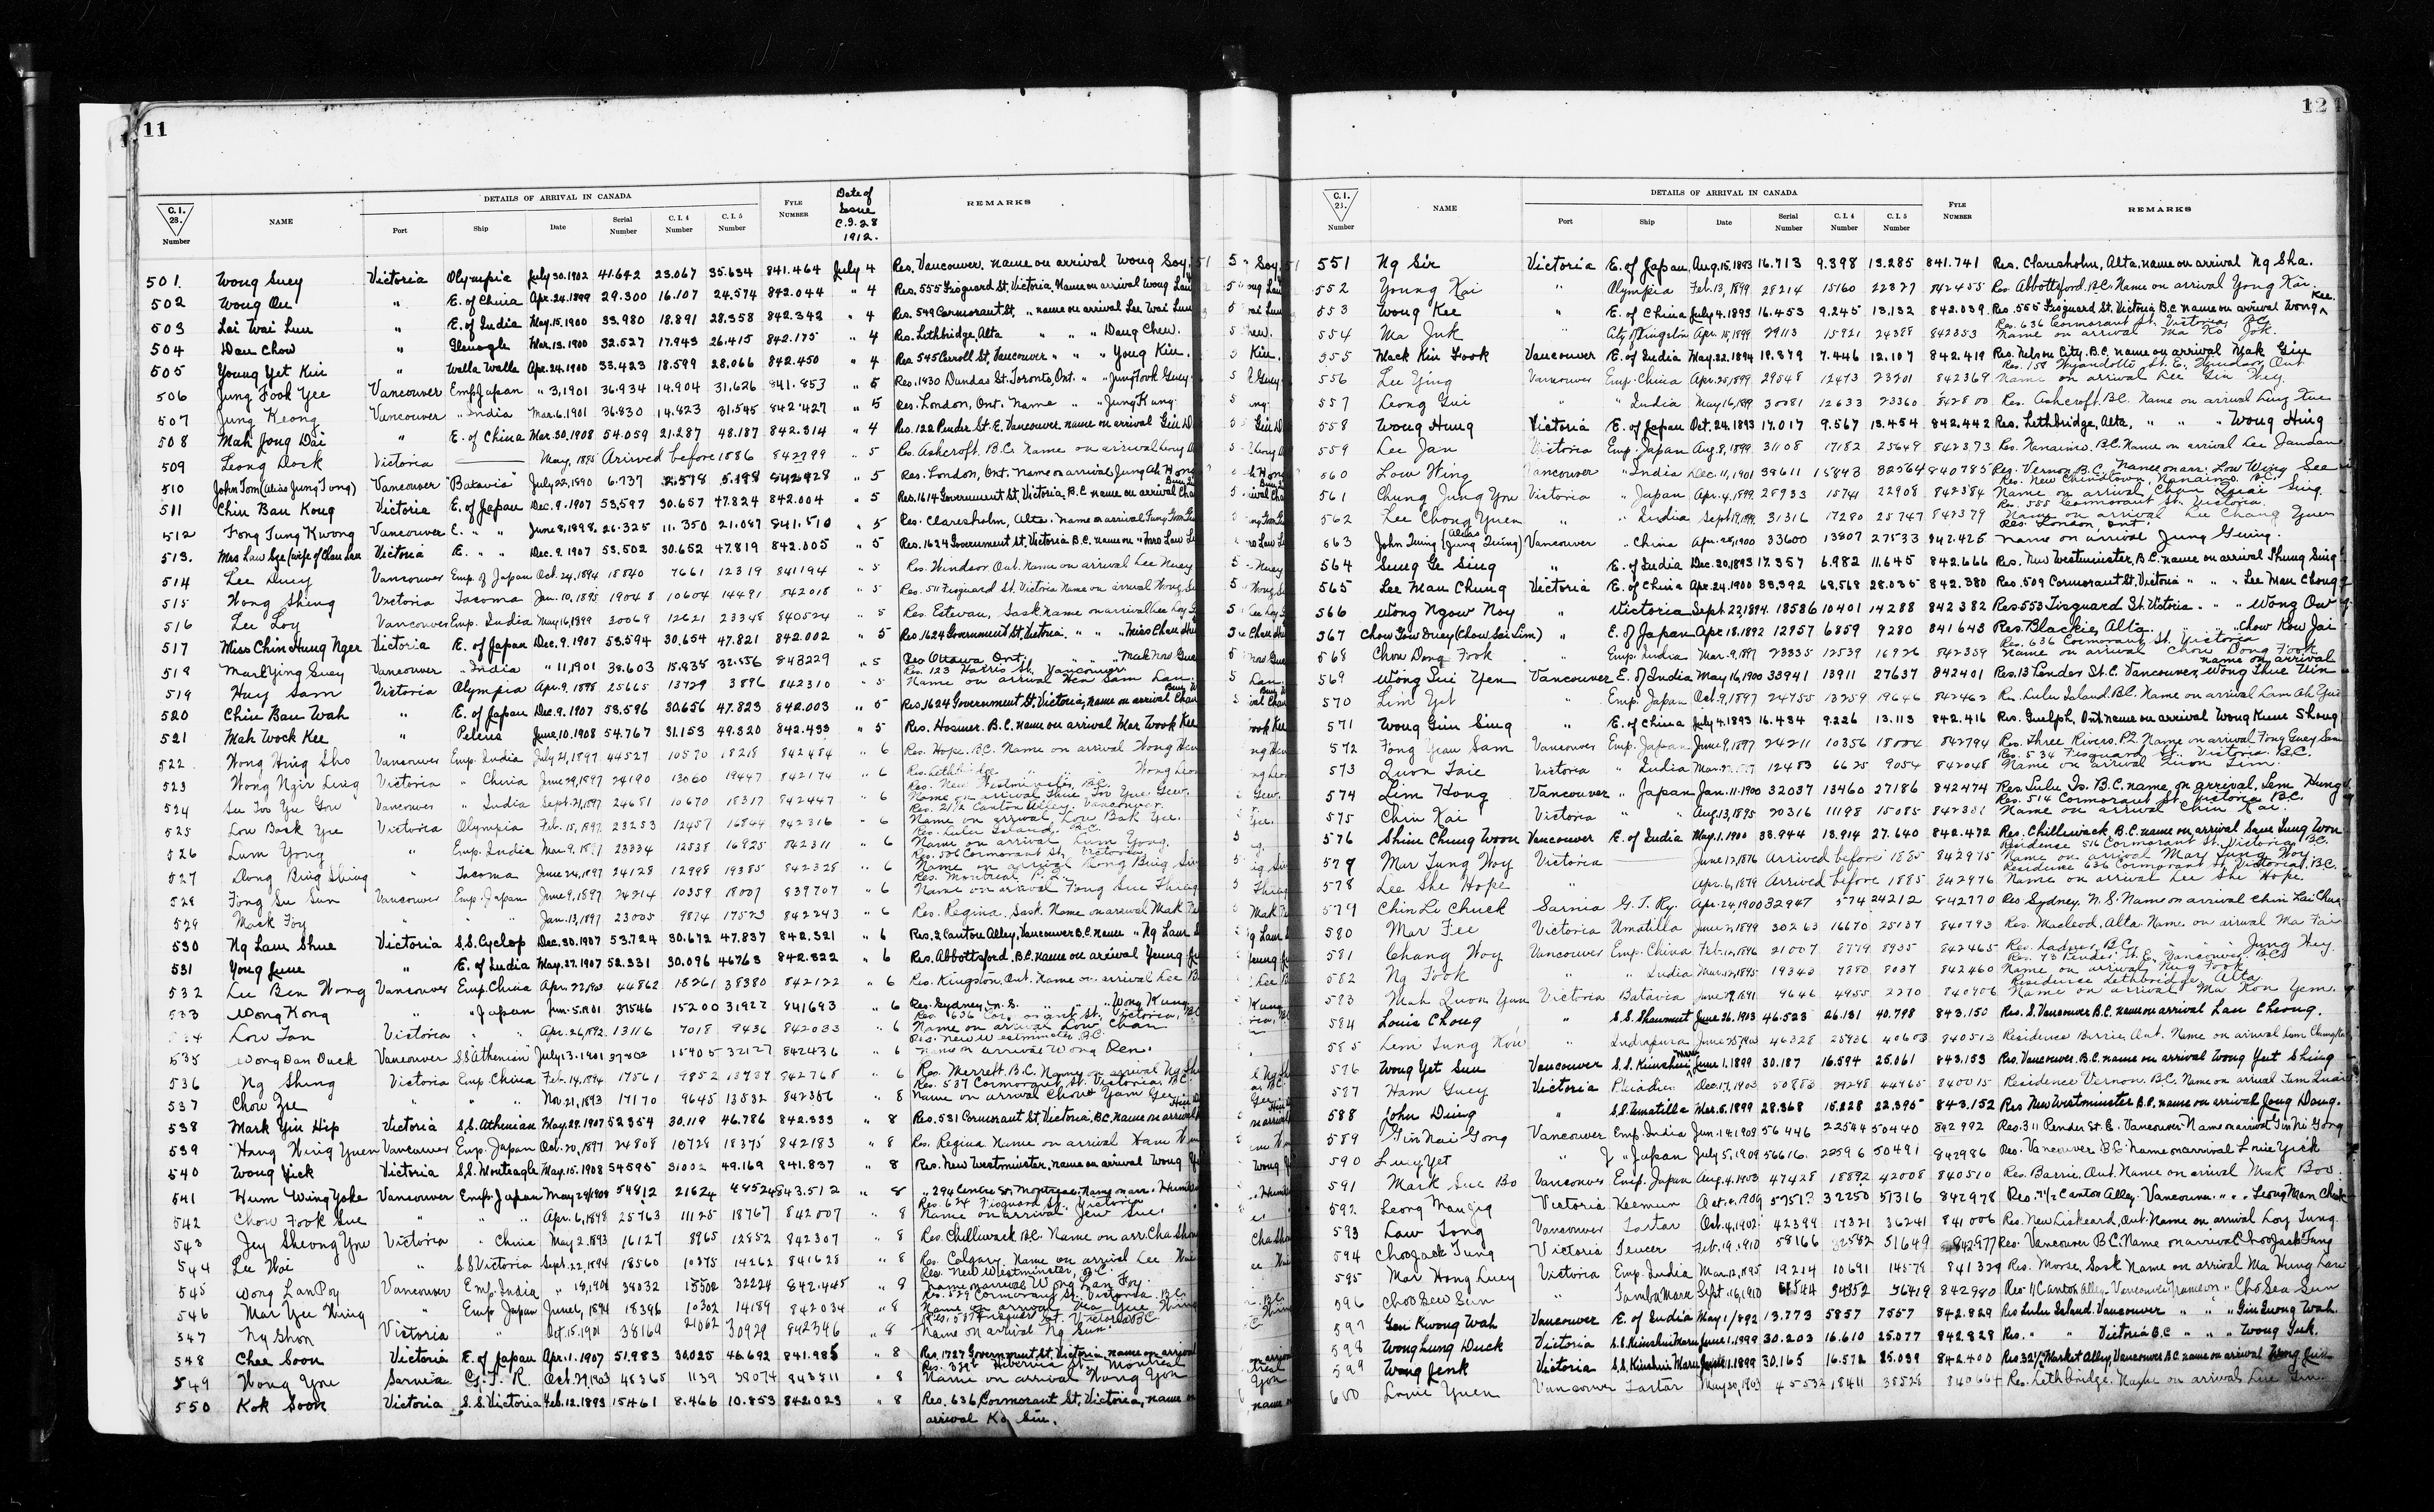 11
DETAILS OF ARRIVAL IN CANADA
C.I. 28. Number NAME Port Ship Date Serial Number C.I.4 Number C.I.5 Number FYLE NUMBER Date of Issue C.I.28 1912. REMARKS
501. Wong Suey Victoria Olympia July 30.1902 41.642 23.067 35.634 841.464 July 4 Res. Vancouver. name on arrival Wong Soy
502 Wong On " E. of China Apr. 24.1899 29.300 16.107 24.574 842.044 " 4 Res. 555 Fisguard St, Victoria, Name on arrival Wong
503 Lai Wai Lun " E. of India May. 15.1900 33.980 18.891 28.358 842.342 " 4 Res. 549 Cormorant St, " name on arrival Lee Wai Lun
504 Dan Chow " Glenogle Mar. 13.1900 32.527 17.943 26.415 842.175 " 4 Res. Lethbridge, Alta " " Dang Chew.
505 Young Yet Kin " Walla Walla Apr. 24.1900 33.423 18.599 28.066 842.450 " 4 Res 545 Carroll St, Vancouver " " " Yong Kin.
506 Jung Fook Yee Vancouver Emp Japan " 3,1901 36.934 14.904 31.626 841.853 " 5 Res. 1930 Dundas St. Toronto, Ont. " " Jung Fook Guey
507 Jung Keong Vancouver " India Mar. 6.1901 36.830 14.823 31.545 842.427 " 5 Res. London, Ont. Name " " Jung Kung
508 Mah Jong Dai " E. of China Mar. 30.1908 54.059 21.287 48.187 842.314 " 4 Res. 122 Pender St. E. Vancouver name on arrival Gin
509 Leong Dock Victoria May, 1885 Arrived before 1886 842799 " 5 Res Ashcroft. B.C. Name on arrival
510 John Tom (alias Jung Tong) Vancouver Batavia July 22,1890 6.737 2.578 5.198 842928 " 5 Res. London, Ont. Name on arrival Jung Ah Hong
511 Chin Bau Kong Victoria E. of Japan Dec. 9.1907 53,597 30.657 47.824 842.004 " 5 Res. 1614 Government St, Victoria, B.C. name on arrival
512 Fong Tung Kwong Vancouver E. " " June 8,1898 26.325 11.350 21.087 841.510 " 5 Res. Claresholm, Alta. name on arrival Fung
513. Mrs Law See (wife of Chau Lau Victoria E. " " Dec. 9.1907 53.502 30.652 47.819 842.005 " 5 Res. 1624 Government St, Victoria B.C. name on " Mrs Law
514 Lee Duey Vancouver Emp. of Japan Oct. 24,1894 18840 7661 12319 841194 " 5 Res. Windsor, Ont. Name on arrival Lee Nuey
515 Wong Shing Victoria Tacoma Jan. 10,1895 19048 10604 14491 842018 " 5 Res. 511 Fisguard St. Victoria Name on arrival
516 Lee Loy Vancouver Emp. India May 16,1899 30069 12621 23348 840524 " 5 Res. Estevan, Sask. name on arrival Lee Loy
517 Miss Chin Hung Nger Victoria E. of Japan Dec. 9.1907 53,594 30.654 47.821 842.002 " 5 Res. 1624 Government St, Victoria. " " " Miss Chau
518 Mark Ying Suey Vancouver " India " 11,1901 38.603 15.835 32.556 843229 " 5 Res Ottawa Ont.
519 Huey Sam Victoria Olympia Apr. 9, 1898 25665 13729 3896 842310 " 5 Res. 123 Harris St, Vancouver Name on arrival Hen Sam Lan.
520 Chin Bau Wah " E. of Japan Dec. 9.1907 53,596 30.656 47.823 842.003 " 5 Res 1624 Government St, Victoria, name on arrival
521 Mah Wock Kee " Peleus June, 10.1908 54.767 31.153 49.320 842.433 " 5 Res. Hosmer. B.C. name on arrival Mar Wook Kee
522 Wong Hing Sho Vancouver Emp. India July 21,1897 44527 10570 18218 842484 " 6 Res. Hope. B.C. Name on arrival Wong
523 Wong Ngir Ling Victoria " China June 29,1897 24190 13060 19447 842174 " 6 Res. Lethbridge
524 Vancouver " India Sept. 21,1897 24681 10670 18317 842447 " 6 Res. New Westminster, B.C.
525 Low Back Yee Victoria Olympia Feb. 15,1897 23253 12457 16844 842316 " 6 Res. 21/2 Canton Alley. Vancouver. Name on arrival Low Bak Yee.
526 Lum Yong " Emp. India Mar 9, 23334 12538 16925 842311 " 6 Res. Lulu Island. B.C. Name on arrival Lum Yong.
527 Dong Bing Shing " Tacoma June 24,1897 24128 12998 19385 842328 " 6 Res. 506 Cormorant St, Victoria Name on arrival Dong Bing
528 Fong Su Sun Vancouver Emp. Japan June 9,1897 24214 10359 18007 839707 " 6 Res. Montreal P.Q. Name on arrival Fong Sue
529 Mack Foy " " " Jan. 13,1897 23005 9874 17523 842243 " 6 Res. Regina. Sask. Name on arrival Mak
530 Ng Lam Shue Victoria S.S. Cyclop Dec. 30.1907 53.724 30.672 47.837 842.321 " 6 Res. 2 Canton Alley, Vancouver B.C. name " Ng Lam
531 Yong June " E. of India May. 27.1907 52.331 30.096 46763 842.322 " 6 Res. Abbottsford. B.C. name on arrival Yeung
532 Lee Ben Wong Vancouver Emp. China Apr. 22, 44862 18261 38380 842122 " 6 Res. Kingston, Ont. Name on arrival Lee
533 Wong Kong " " Japan Jan. 5.1901 37546 15200 31922 841693 " 6 Res. Sydney, N.S. " " " Wong Kung
534 Low Tan Victoria " " Apr. 26,1892 13116 7018 9436 842033 " 6 Res. 636 Cormorant St. Victoria, Name on arrival Low Chan
535 Wong Dan Duck Vancouver S.S. Athenian July 13.1901 37802 15405 32127 842436 " 6 Res. New Westminster B.C. Name on arrival Wong Den.
536 Ng Shing Victoria Emp. China Feb. 14,1894 17561 9852 13739 842768 " 6 Res. Merrett. B.C. Name on arrival Ng
537 Chow Zee " " " Nov. 21,1893 17170 9645 13532 842356 " 8 Res. 537 Cormorant St. Victoria, B.C. Name on arrival Chow Yam Gee
538 Mark Yin Hip Victoria S.S. Athenian May. 29.1907 52354 30.119 46.786 842.333 " 8 Res. 531 Cormorant St, Victoria, B.C. name on arrival
539 Hang Wing Yuen Vancouver Emp. Japan Oct. 20,1897 24808 10728 18375 842183 " 8 Res. Regina Name on arrival Ham
540 Wong Yick Victoria S.S. Monteagle May. 15.1908 54595 31002 49.169 841.837 " 8 Res. New Westminster, name on arrival Wong
541 Hum Wing Yoke Vancouver Emp. Japan May 29,1908 54812 21624 48524 843.512 " 8 " 294 Centre St, Montreal, Name on arr.
542 Chow Fook Sue " " " Apr. 6,1898 25763 11125 18767 842007 " 8 Res. 624 Fisguard St, Victoria Name on arrival Jew Sue.
543 Jey Sheong You Victoria " China May 2.1893 16127 8965 12852 842307 " 8 Res. Chilliwack B.C. Name on arr. Cha
544 Lee Hoi " S.S Victoria Sept. 22,1894 18560 10375 14262 841628 " 8 Res. Calgary. Name on arrival Lee
545 Wong Lan Poy Vancouver Emp. India " 19,1901 38032 15502 32224 842.445 " 8 Res. New Westminster, B.C. Name on arrival Wong Lan Foy.
546 Mar Yee Hing " Emp Japan June 6, 1894 18396 10302 14189 842034 " 8 Res. 529 Cormorant St. Victoria. B.C. Name on arrival Ma Yee Hing
547 Ng Shon Victoria " Oct. 15.1901 38169 21062 30929 842396 " 8 Name on arrival Ng Sun.
548 Chee Soon Victoria E. of Japan Apr. 1. 1907 51.983 30.025 46.692 841.985 " 8 Res. 1727 Government St, Victoria, name on arrival
549 Wong You Sarnia G. T. R. Oct. 29,1903 48365 1139 38074 843811 " 8 Montreal Name on arrival Wong Yon
550 Kok Soon Victoria S.S. Victoria Feb. 12.1893 15461 8.466 10.853 842.023 " 8 Res. 636, Cormorant St, Victoria, name on
arrival Ko Sin.
12
DETAILS OF ARRIVAL IN CANADA
C.I. 28. Number NAME Port Ship Date Serial Number C.I.4 Number C.I.5 Number FYLE NUMBER REMARKS
551 Ng Sir Victoria E. of Japan, Aug. 15.1893 16.713 9.398 13.285 841.741 Res. Claresholm, Alta. name on arrival Ng Sha.
552 Young Kai " Olympia Feb. 13, 1899 28214 15160 22827 842455 Res. Abbottsford. B.C. Name on arrival Yong Kai.
553 Wong Kee " E. of China July 4.1893 16.453 9.245 13,132 842.039 Res. 555 Fisguard St, Victoria B.C. name on arrival Wong Kee.
554 Ma Juk " City of Kingston Apr. 15,1899 29113 15921 24388 842353 Res. 636 Cormorant St. Victoria, B.C. Name on arrival Ma Jok.
555 Mack Kin Fook Vancouver E. of India May. 22.1894 18.379 7.446 12.107 842.419 Res. Nelson City. B.C. name on arrival Mak Gin
556 Lee Ying Vancouver Emp. China Apr. 25,1899 29548 12473 23201 842369 Res. 158 Wyandotte St. E. Windsor, Ont Name on arrival Lee Gin Hey.
557 Leong Gui " " India May 16,1899 30081 12633 23360 842800 Res. Ashcroft. B.C. Name on arrival
558 Wong Hung Victoria E. of Japan Oct. 24.1893 17.017 9.567 13.454 842.442 Res. Lethbridge, Alta, " " " Wong Hing
559 Lee Jan Victoria Emp. Japan Aug. 8,1899 31108 17182 25649 842373 Res. Nanaimo. B.C. Name on arrival Lee
560 Low Wing Vancouver " India Dec. 11,1901 38611 15843 32564 840785 Res. Vernon B.C. Name on arr. Low Wing See
561 Chung Jung You Victoria " Japan Apr. 4,1899 28933 15741 22908 842384 Res. New Chinatown, Nanaimo, B.C. Name on arrival
562 Lee Chong Yuen " " India Sept 19,1899 31316 17280 25747 842379 Res. 555 Cormorant St. Victoria Name on arrival Lee Chang Yuen
563 John Tuing (alias Jung Tuing) Vancouver " China Apr. 28,1900 33600 13807 27533 842.425 Res. London, Ont. Name on arrival Jung Guing.
564 Sung Ge Sing " E. of India Dec. 20.1893 17.357 6.982 11.645 842.666 Res. New Westminster, B.C. name on arrival Shung Sing
565 Lee Man Chung Victoria E. of China Apr. 24.1900 33,392 28.035 842.380 Res. 509 Cormorant St. Victoria " " " Lee Man Chong
566 Wong Ngow Noy " Victoria Sept 22,1894 18586 10401 14288 842382 Res 553 Fisguard St. Victoria. " " Wong Ow
567 Chow Gow Duey (Chow Sai Lim) " E. of Japan Apr. 18.1892 12957 6859 9280 841643 Res. Blackie, Alta. " " " Chow Kow Jai
568 Chou Dong Fook " Emp. India Mar. 9, 23335 12539 16926 842359 Res. 636 Cormorant St. Victoria Name on arrival Chow Dong Fook
569 Wong Sui Yen Vancouver E. of India May 16,1900 33941 13911 27637 842401 Res. 13 Pender St. E. Vancouver, name on arrival Wong
570 Lim Yet " Emp. Japan Oct. 9,1897 24755 13259 19646 842462 Res. Lulu Island. B.C. Name on arrival Lam Ah
571 Wong Gin Sing " E. of China July 4.1893 16.434 9.226 13.113 842.416 Res. Guelph, Ont. name on arrival Wong Kune Shong
572 Fong Yeau Sam Vancouver Emp. Japan June 9,1897 24211 10356 18004 842794 Res. Three Rivers. P.Q. Name on arrival Fong Guey Sam
573 Quon Taie Victoria " India Mar. 12483 6625 9054 842048 Res. 534 Fisguard St. Victoria B.C. Name on arrival Quon Tim.
574 Lim Hong Vancouver " Japan Jan. 11.1900 32037 13460 27186 842474 Res. Lulu Is. B.C. name on arrival, Lem Hung
575 Chin Kai Victoria " " Aug. 13,1895 20316 11198 15085 842331 Res. 514 Cormorant St, Victoria B.C. Name on arrival Chin Kai.
576 Shim Chung Woon Vancouver E. of India May. 1. 1900 33.944 13.914 27.640 842.472 Res. Chilliwack, B.C. name on arrival Sam Tung Won
577 Mar Tung Hoy Victoria June 17,1876 Arrived before 1885 842975 Residence 516 Cormorant St. Victoria B.C. Name on arrival Mar Tung Hoy
578 Lee She Hope " Apr. 6,1879 Arrived before 1885 842976 Residence 636 Cormorant St. Victoria, B.C. Name on arrival Lee She Hope
579 Chin Li Chuck Sarnia G. T. Ry. Apr. 24,1900 32947 574 24212 842770 Res Sydney. N.S. Name on arrival Chin Lai
580 Mar Fee Victoria Umatilla June 21,1899 30263 16670 25137 840793 Res. Macleod, Alta. Name on arrival Ma Fai
581 Chang Hoy Vancouver Emp. China Feb. 12,1896 21007 8779 8935 842465 Res. Ladner B.C. " " " Jung Hey.
582 Ng Fook " " India Mar. 12,1895 19343 7380 8037 842460 Res. 73 Pender St. E, Vancouver, B.C. Name on arrival Ning Fook
583 Mah Quon Yum Victoria Batavia June 29,1891 9646 4955 2270 840906 Residence Lethbridge Alta Name on arrival Ma Kon Yem.
584 Louie Chong " S.S. Shawmut June 26.1903 46.523 26.131 40.798 843.150 Res. S. Vancouver B.C. name on arrival Lau Cheong.
585 Lem Sung Kow " Indrapura June 25,1903 46328 25936 40603 840513 Residence Barrie, Ont. Name on arrival Lem
586 Wong Yet Sun Vancouver S.S. Kinshiu Maru June 1.1899 30.187 16.594 25.061 843.153 Res. Vancouver. B.C. name on arrival Wong Yut Shing
587 Ham Guey Victoria Pleiades Dec. 17,1903 50883 29298 44965 840015 Residence Vernon. B.C. Name on arrival
588 John Dung " S.S. Umatilla Mar. 5.1899 28.368 15.228 22.395 843.152 Res New Westminster B.C. name on arrival Jong Dang.
589 Gin Nai Gong Vancouver Emp. India Jun. 14,1909 56446 22544 50440 842992 Res. 311 Pender St. E. Vancouver Name on arrival Gin Ni Gong
590 Luey Yet " " Japan July 5,1909 56616 22596 50491 842986 Res. Vancouver B.C. Name on arrival Louie Yick
591 Mark Sue Bo Vancouver Emp. Japan Aug. 4.1903 47428 18892 42008 840510 Res. Barrie, Ont. Name on arrival Mak Boo.
592 Leong Man Jig Victoria Keemun Oct. 6,1909 32250 51316 842978 Res. 7 1/2 Canton Alley. Vancouver. " " " Leong Man Chick
593 Law Tong Vancouver Tartar Oct. 4,1902 42399 17321 36241 841006 Res. New Liskeard, Ont. Name on arrival Loy Tung.
594 Choo Jack Tung Victoria Teucer Feb. 19,1910 58166 32582 51649 842977 Res. Vancouver B.C. Name on arrival Choo Jack Tang
595 Mar Hong Luey Victoria Emp. India Mar. 12,1895 19214 10691 14578 841329 Res. Morse, Sask Name on arrival Ma Hung Lau
596 Choo Sew Sun " Tamba Maru Sept. 16,1910 34352 56419 842980 Res. 1/2 Canton Alley. Vancouver Name on " Cho Sea Sun
597 Gen Kwong Wah Vancouver E. of India May 1/892 13.773 5857 7557 842.829 Res Lulu Island. Vancouver " " " Gin Quong Wah.
598 Wong Lung Duck Victoria S.S. Kinshiu Maru June 1.1899 30.203 16.610 25.077 842.828 Res. " " Victoria B.C. " " " Wong Tuk.
599 Wong Jenk Victoria S.S. Kinshiu Maru June 1.1899 30.165 16.572 25.039 842.400 Res 32 1/2 Market Alley, Vancouver B.C. name on arrival Wong Jim
600 Louie Yuen Vancouver Tartar May 30,1903 45532 18411 38528 84066 Res. Lethbridge. Name on arrival